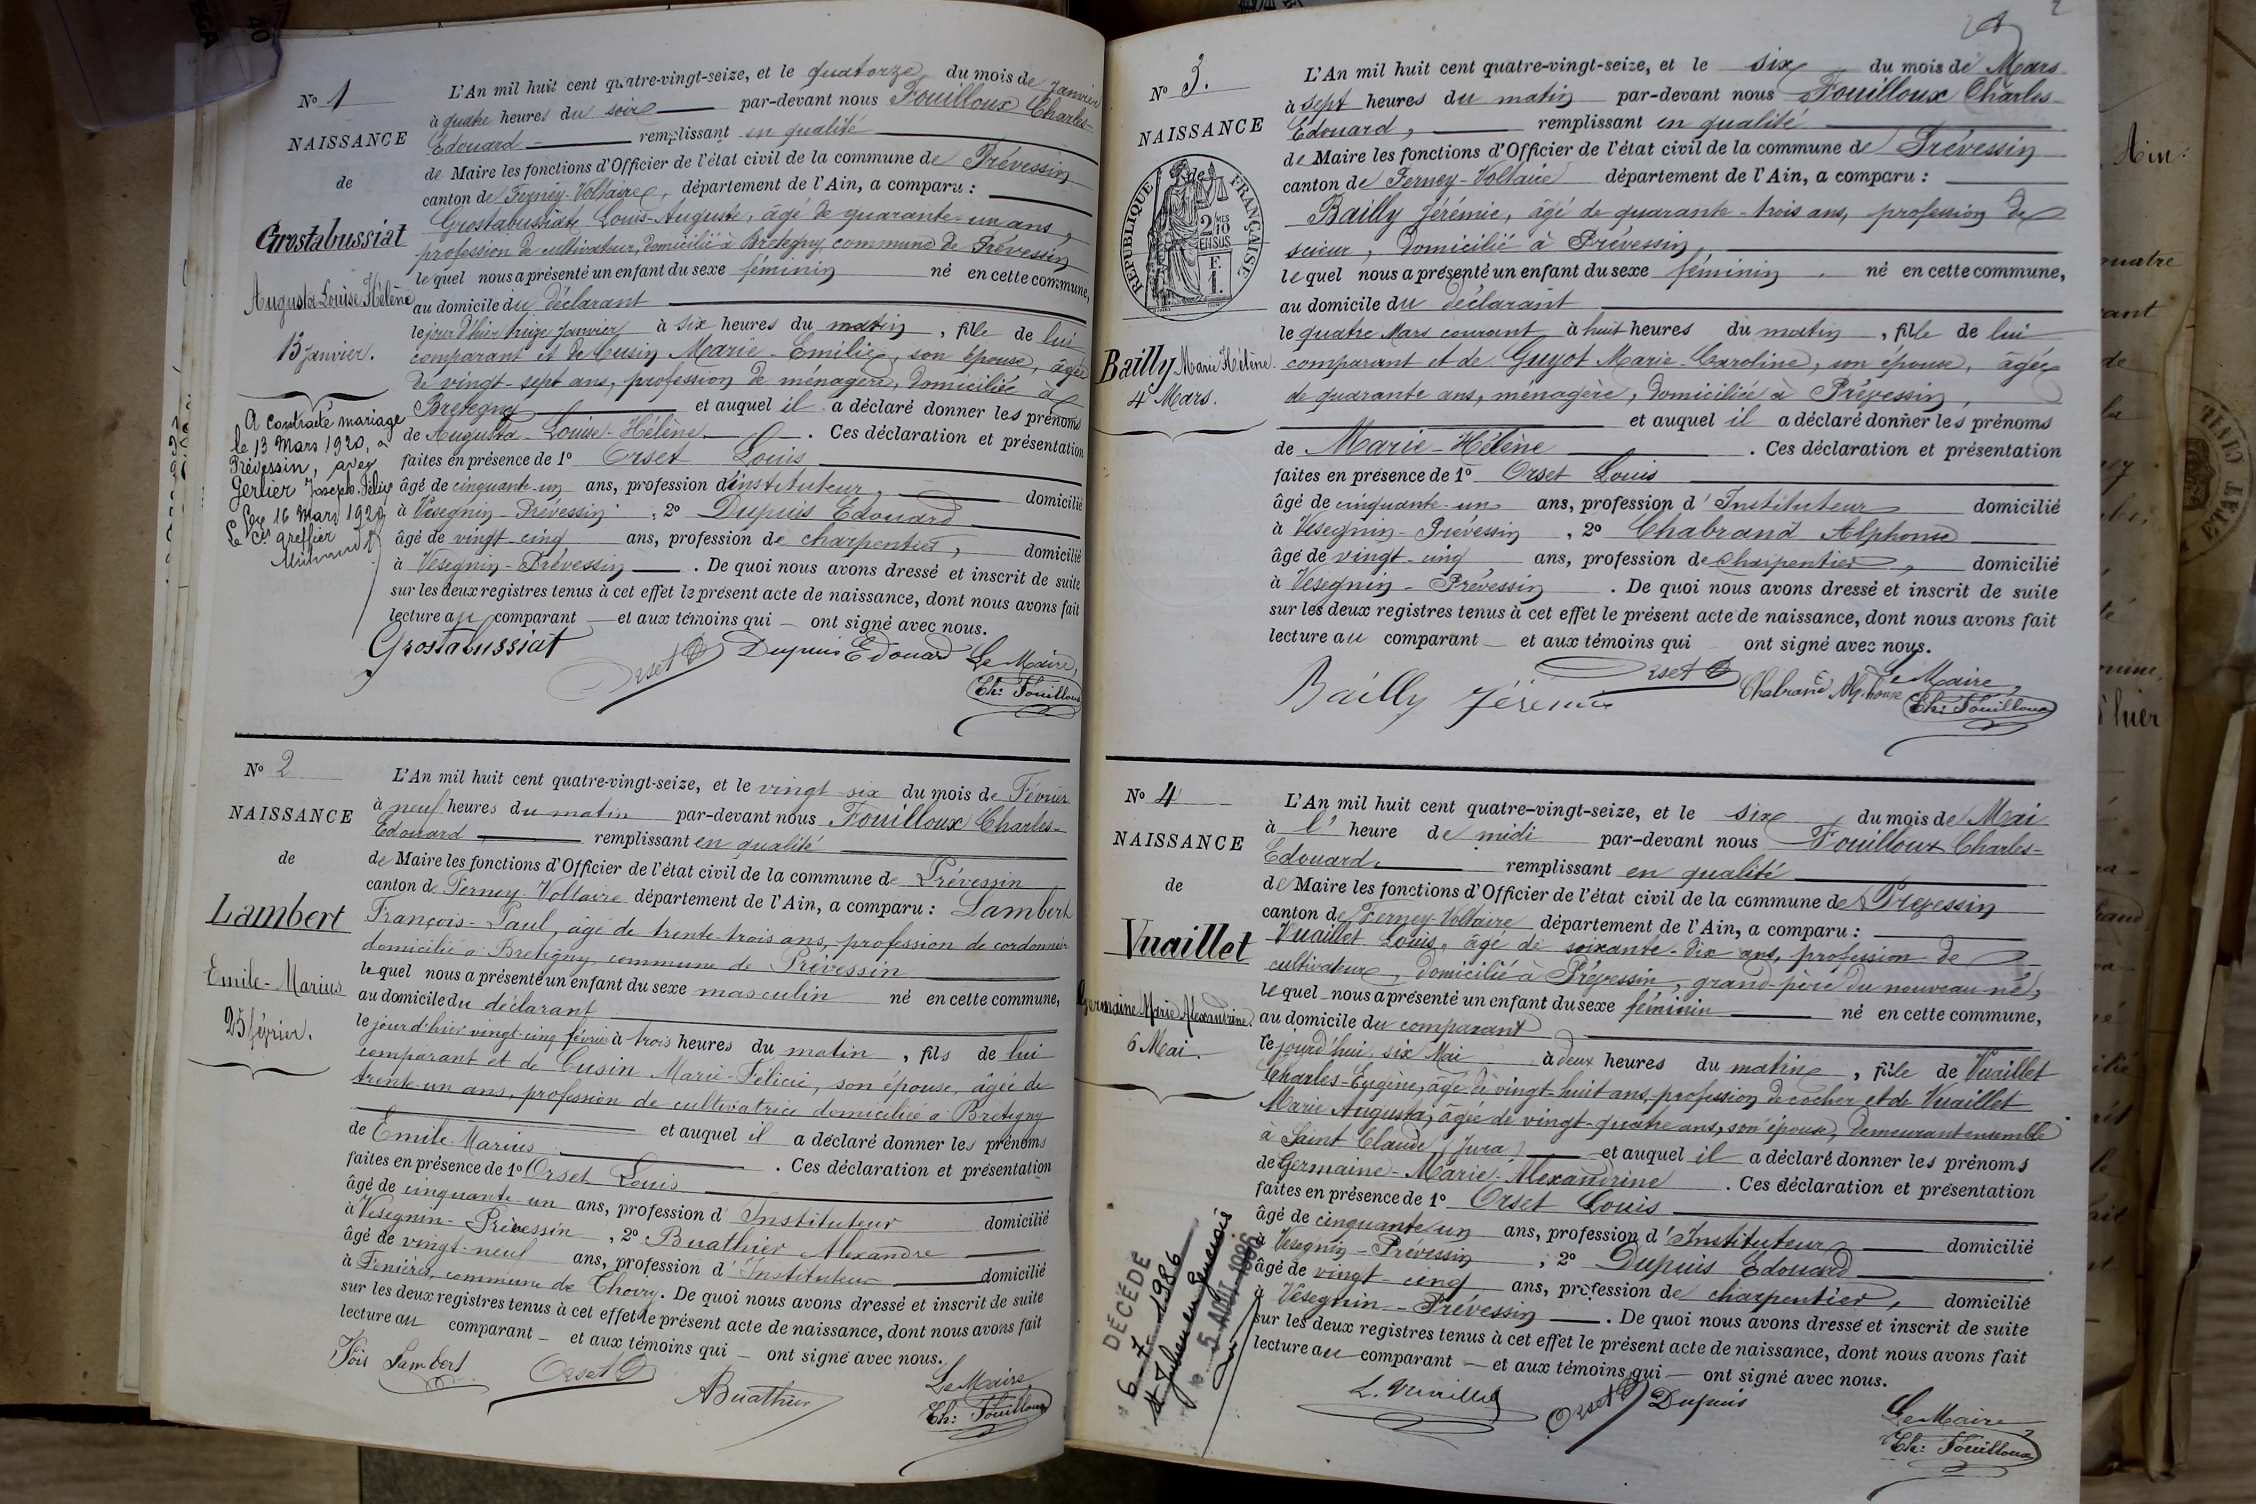 N° 1
NAISSANCE
de
Grostabussiat
Augusta Louise Hélène
13 janvier.
A contracté mariage
le 13 Mars 1920, à
Prévessin, avec
Gerlier Joseph Félix
Le 16 Mars 1920
Le greffier
L'An mil huit cent quatre-vingt-seize, et le quatorze du mois de Janvier
à quatre heures du soir par-devant nous Fouilloux Charles-
Edouard remplissant en qualité
de Maire les fonctions d'Officier de l'état civil de la commune de Prévessin
canton de Ferney-Voltaire, département de l'Ain, a comparu :
Grostabussiat Louis-Auguste, âgé de quarante-un ans,
profession de cultivateur, domicilié à Bretegny commune de Prévessin
lequel nous a présenté un enfant du sexe féminin né en cette commune,
au domicile du déclarant
le jour d'hier treize Janvier à six heures du matin, fille de lui
comparant et de Cusin Marie-Emilie, son épouse, âgée
de vingt-sept ans, profession de ménagère, domiciliée à
Bretegny et auquel il a déclaré donner les prénoms
de Augusta-Louise-Hélène. Ces déclaration et présentation
faites en présence de 1° Orset Louis
âgé de cinquante-un ans, profession d'instituteur, domicilié
à Vésegnin-Prévessin, 2° Dupuis Edouard
âgé de vingt-cinq ans, profession de charpentier, domicilié
à Vesegnin-Prévessin. De quoi nous avons dressé et inscrit de suite
sur les deux registres tenus à cet effet le présent acte de naissance, dont nous avons fait
lecture au comparant et aux témoins qui ont signé avec nous.
Grostabussiat Orset Dupuis Edouard Le Maire,
Ch: Fouilloux
N° 2
NAISSANCE
de
Lambert
Emile-Marius
25 février.
L'An mil huit cent quatre-vingt-seize, et le vingt-six du mois de Février
à neuf heures du matin par-devant nous Fouilloux Charles-
Edouard remplissant en qualité
de Maire les fonctions d'Officier de l'état civil de la commune de Prévessin
canton de Ferney-Voltaire département de l'Ain, a comparu : Lambert
François-Paul, âgé de trente-trois ans, profession de cordonnier
domicilié à Bretigny commune de Prévessin
lequel nous a présenté un enfant du sexe masculin né en cette commune,
au domicile du déclarant
le jour d'hier vingt-cinq février à trois heures du matin, fils de lui
comparant et de Cusin Marie-Félicie, son épouse, âgée de
trente-un ans, profession de cultivatrice domiciliée à Bretigny
et auquel il a déclaré donner les prénoms
de Emile Marius. Ces déclaration et présentation
faites en présence de 1° Orset Louis
âgé de cinquante-un ans, profession d'Instituteur domicilié
à Vésegnin-Prévessin, 2° Buathier Alexandre
âgé de vingt-neuf ans, profession d'Instituteur domicilié
à Fenières, commune de Thoiry. De quoi nous avons dressé et inscrit de suite
sur les deux registres tenus à cet effet le présent acte de naissance, dont nous avons fait
lecture au comparant et aux témoins qui ont signé avec nous.
Fois Lambert Orset ABuathier Le Maire,
Ch: Fouilloux
N° 3.
NAISSANCE
de
RÉPUBLIQUE FRANÇAISE
2/10 EN SUS
F.
1.
Bailly Marie Hélène.
4 Mars.
L'An mil huit cent quatre-vingt-seize, et le six du mois de Mars
à sept heures du matin par-devant nous Fouilloux Charles-
Edouard, remplissant en qualité
de Maire les fonctions d'Officier de l'état civil de la commune de Prévessin
canton de Ferney-Voltaire département de l'Ain, a comparu :
Bailly Jérémie, âgé de quarante-trois ans, profession de
scieur, domicilié à Prévessin,
lequel nous a présenté un enfant du sexe féminin né en cette commune,
au domicile du déclarant
le quatre Mars courant à huit heures du matin, fille de lui
comparant et de Guyot Marie-Caroline, son épouse, âgée
de quarante ans, ménagère, domiciliée à Prévessin,
et auquel il a déclaré donner les prénoms
de Marie-Hélène. Ces déclaration et présentation
faites en présence de 1° Orset Louis
âgé de cinquante-un ans, profession d'Instituteur domicilié
à Vésegnin-Prévessin, 2° Chabrand Alphonse
âgé de vingt-cinq ans, profession de charpentier, domicilié
à Vesegnin-Prévessin. De quoi nous avons dressé et inscrit de suite
sur les deux registres tenus à cet effet le présent acte de naissance, dont nous avons fait
lecture au comparant et aux témoins qui ont signé avec nous.
Bailly Jérémie Orset Chabrand Alphonse Le Maire,
Ch: Fouilloux
N° 4
NAISSANCE
de
Vuaillet
Germaine Marie Alexandrine.
6 Mai.
DÉCÉDÉ
6-7-1986
St Julien en Genevois
5 AOUT 1986
L'An mil huit cent quatre-vingt-seize, et le six du mois de Mai
à l'heure de midi par-devant nous Fouilloux Charles-
Edouard remplissant en qualité
de Maire les fonctions d'Officier de l'état civil de la commune de Prévessin
canton de Ferney-Voltaire département de l'Ain, a comparu :
Vuaillet Louis, âgé de soixante-dix ans, profession de
cultivateur, domicilié à Prévessin, grand-père du nouveau-né,
lequel nous a présenté un enfant du sexe féminin né en cette commune,
au domicile du comparant
le jourd'hui six Mai à deux heures du matin, fille de Vuaillet
Charles-Eugène, âgé de vingt-huit ans, profession de cocher et de Vuaillet
Marie Augusta, âgée de vingt-quatre ans, son épouse, demeurant ensemble
à Saint Claude (Jura) et auquel il a déclaré donner les prénoms
de Germaine-Marie-Alexandrine. Ces déclaration et présentation
faites en présence de 1° Orset Louis
âgé de cinquante un ans, profession d'Instituteur domicilié
à Vesegnin-Prévessin, 2° Dupuis Edouard
âgé de vingt-cinq ans, profession de charpentier, domicilié
à Vesegnin-Prévessin. De quoi nous avons dressé et inscrit de suite
sur les deux registres tenus à cet effet le présent acte de naissance, dont nous avons fait
lecture au comparant et aux témoins qui ont signé avec nous.
L. Vuaillet Orset Dupuis Le Maire
Ch: Fouilloux